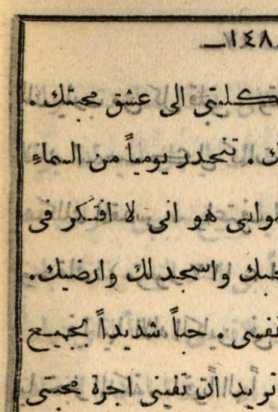 ١٤٨ـ
بكليتي الى عشق محبتك.
ك. تنحدر يومياً من السماءِ
هو انى لا افتكر فى
حبك واسجد لك وارضيك.
حباً شديداً بجميع
تريد ان تفينى اجرة محبتى